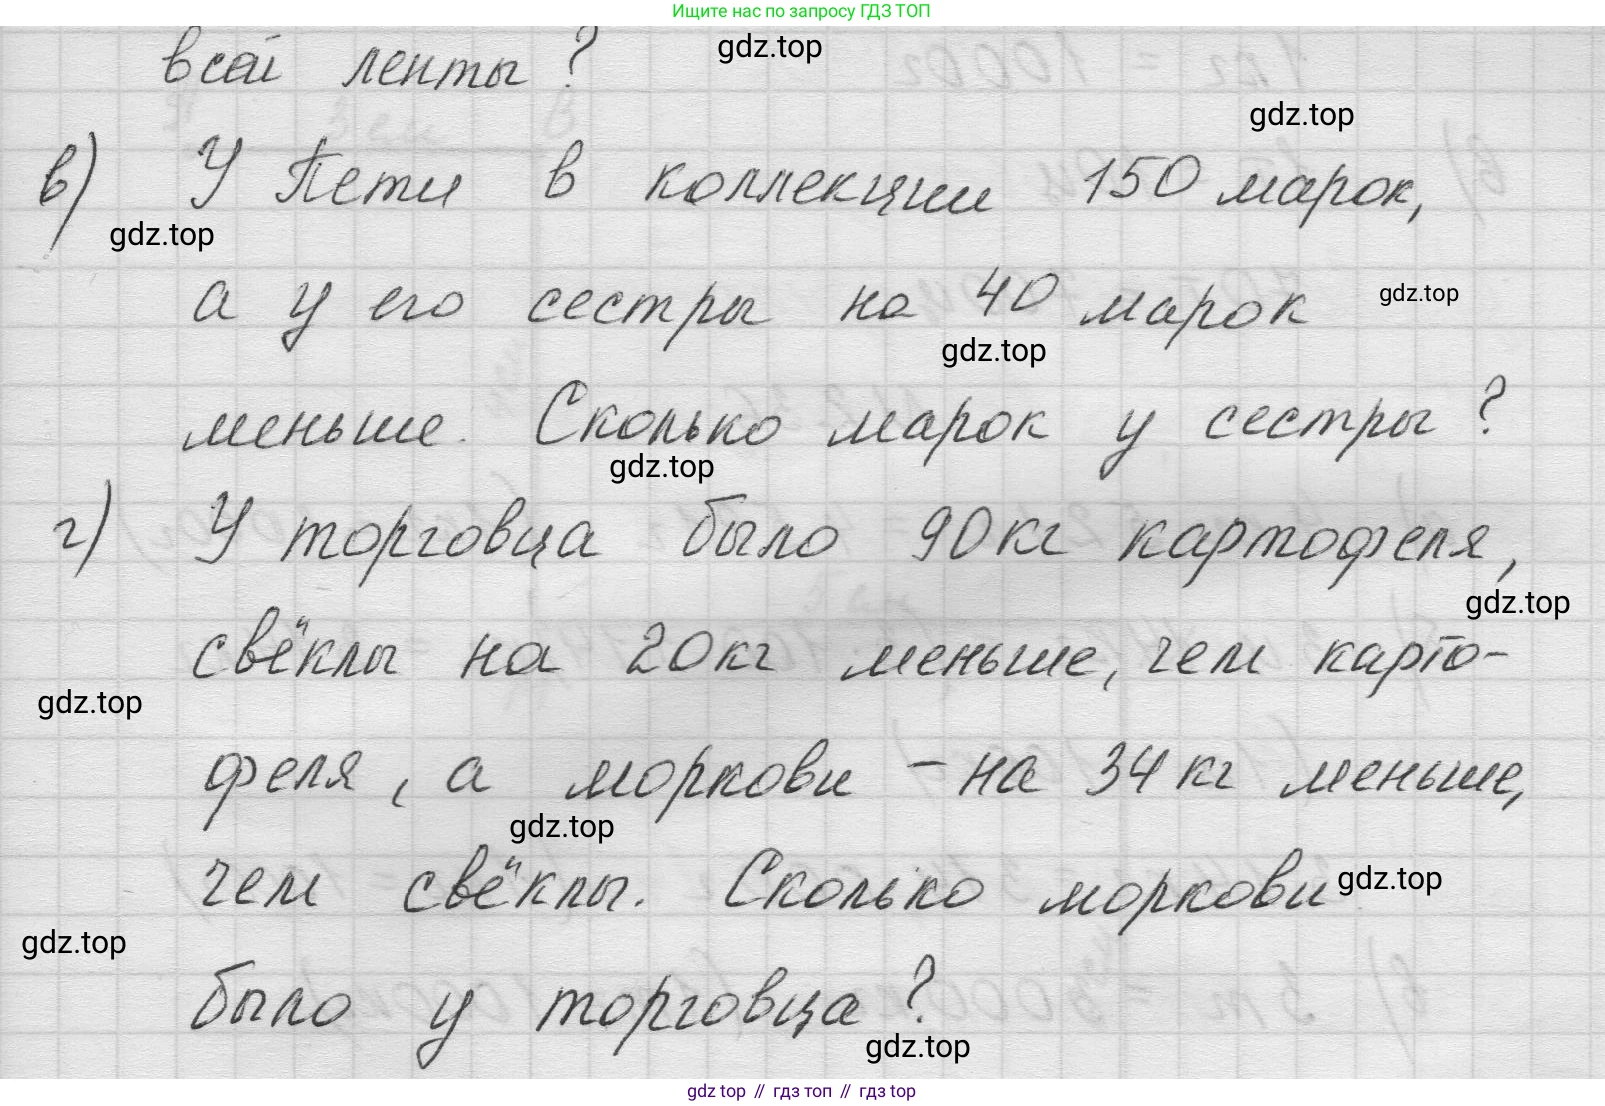 Ищите нас по запросу ГДЗ ТОП
всей ленты ? gdz.top
gdz.top
в) У Пети в коллекции 150 марок,
gdz.top
а у его сестры на 40 марок gdz.top
gdz.top
меньше. Сколько марок у сестры ?
gdz.top
г) У торговца было 90 кг картофеля,
gdz.top
свёклы на 20 кг меньше, чем карто-
gdz.top
феля, а моркови - на 34 кг меньше,
gdz.top
чем свёклы. Сколько моркови gdz.top
gdz.top
было у торговца ?
gdz.top
gdz top // гдз топ // gdz top